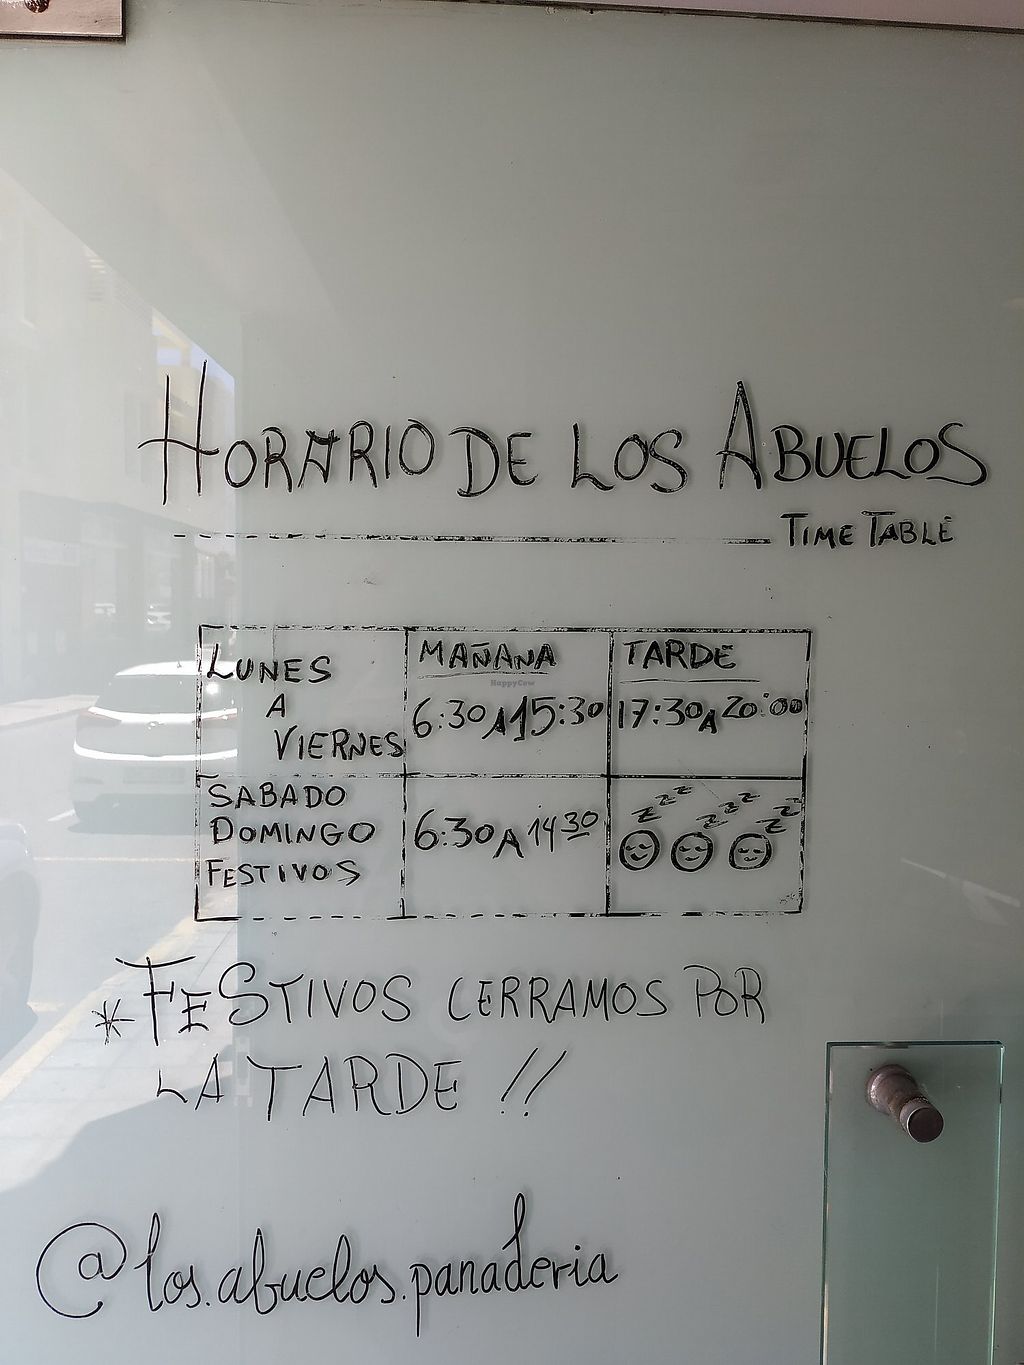 HORARIO DE LOS ABUELOS
TIME TABLE
LUNES A VIERNES
MAÑANA
6:30 A 15:30
TARDE
17:30 A 20:00
SABADO
DOMINGO
FESTIVOS
6:30 A 14 30
z z z z z z z z z
* FESTIVOS CERRAMOS POR
LA TARDE !!
@los.abuelos.panaderia
HappyCow